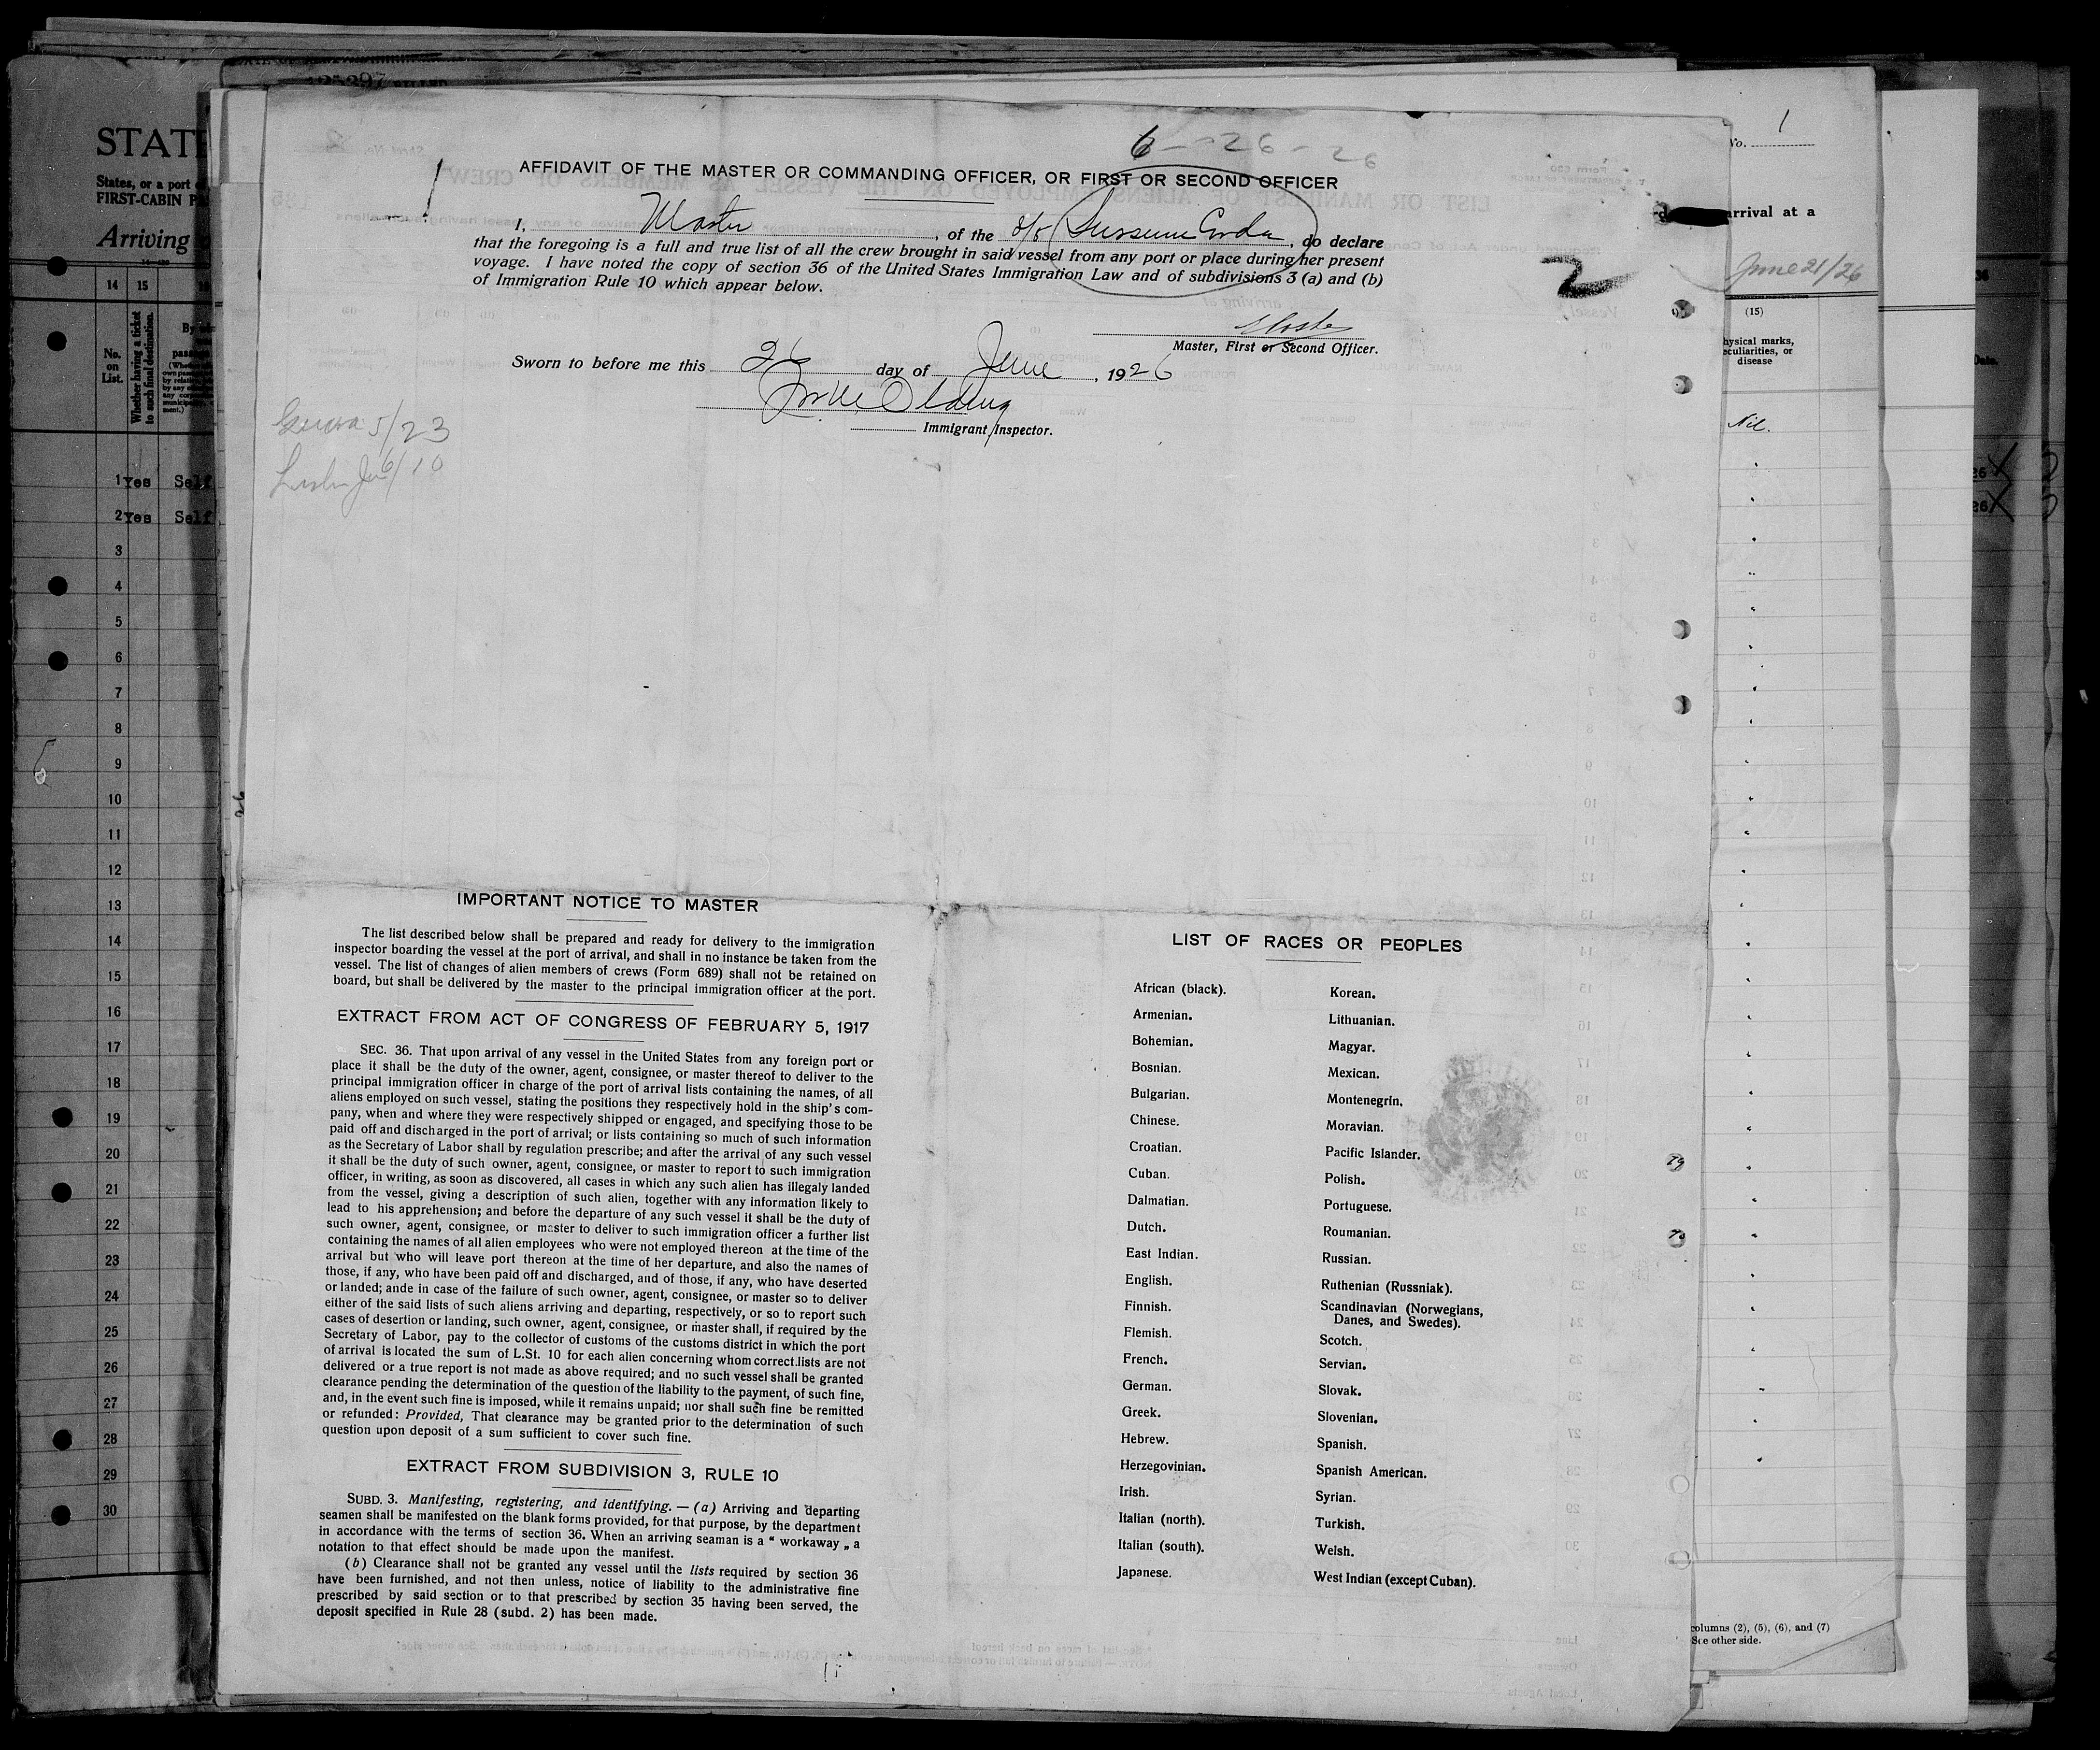 6 - 26 - 26
AFFIDAVIT OF THE MASTER OR COMMANDING OFFICER, OR FIRST OR SECOND OFFICER
I, Master, of the S/S Sursum Corda, do declare
that the foregoing is a full and true list of all the crew brought in said vessel from any port or place during her present
voyage. I have noted the copy of section 36 of the United States Immigration Law and of subdivisions 3 (a) and (b)
of Immigration Rule 10 which appear below.
2
Master, First or Second Officer.
Sworn to before me this 26 day of June, 1926
Immigrant Inspector.
5/23
6/10
IMPORTANT NOTICE TO MASTER
The list described below shall be prepared and ready for delivery to the immigration
inspector boarding the vessel at the port of arrival, and shall in no instance be taken from the
vessel. The list of changes of alien members of crews (Form 689) shall not be retained on
board, but shall be delivered by the master to the principal immigration officer at the port.
EXTRACT FROM ACT OF CONGRESS OF FEBRUARY 5, 1917
SEC. 36. That upon arrival of any vessel in the United States from any foreign port or
place it shall be the duty of the owner, agent, consignee, or master thereof to deliver to the
principal immigration officer in charge of the port of arrival lists containing the names, of all
aliens employed on such vessel, stating the positions they respectively hold in the ship's com-
pany, when and where they were respectively shipped or engaged, and specifying those to be
paid off and discharged in the port of arrival; or lists containing so much of such information
as the Secretary of Labor shall by regulation prescribe; and after the arrival of any such vessel
it shall be the duty of such owner, agent, consignee, or master to report to such immigration
officer, in writing, as soon as discovered, all cases in which any such alien has illegaly landed
from the vessel, giving a description of such alien, together with any information likely to
lead to his apprehension; and before the departure of any such vessel it shall be the duty of
such owner, agent, consignee, or master to deliver to such immigration officer a further list
containing the names of all alien employees who were not employed thereon at the time of the
arrival but who will leave port thereon at the time of her departure, and also the names of
those, if any, who have been paid off and discharged, and of those, if any, who have deserted
or landed; ande in case of the failure of such owner, agent, consignee, or master so to deliver
either of the said lists of such aliens arriving and departing, respectively, or so to report such
cases of desertion or landing, such owner, agent, consignee, or master shall, if required by the
Secretary of Labor, pay to the collector of customs of the customs district in which the port
of arrival is located the sum of L.St. 10 for each alien concerning whom correct lists are not
delivered or a true report is not made as above required; and no such vessel shall be granted
clearance pending the determination of the question of the liability to the payment, of such fine,
and, in the event such fine is imposed, while it remains unpaid; nor shall such fine be remitted
or refunded: Provided, That clearance may be granted prior to the determination of such
question upon deposit of a sum sufficient to cover such fine.
EXTRACT FROM SUBDIVISION 3, RULE 10
SUBD. 3. Manifesting, registering, and identifying. — (a) Arriving and departing
seamen shall be manifested on the blank forms provided, for that purpose, by the department
in accordance with the terms of section 36. When an arriving seaman is a “ workaway „ a
notation to that effect should be made upon the manifest.
(b) Clearance shall not be granted any vessel until the lists required by section 36
have been furnished, and not then unless, notice of liability to the administrative fine
prescribed by said section or to that prescribed by section 35 having been served, the
deposit specified in Rule 28 (subd. 2) has been made.
LIST OF RACES OR PEOPLES
African (black).
Armenian.
Bohemian.
Bosnian.
Bulgarian.
Chinese.
Croatian.
Cuban.
Dalmatian.
Dutch.
East Indian.
English.
Finnish.
Flemish.
French.
German.
Greek.
Hebrew.
Herzegovinian.
Irish.
Italian (north).
Italian (south).
Japanese.
Korean.
Lithuanian.
Magyar.
Mexican.
Montenegrin.
Moravian.
Pacific Islander.
Polish.
Portuguese.
Roumanian.
Russian.
Ruthenian (Russniak).
Scandinavian (Norwegians,
Danes, and Swedes).
Scotch.
Servian.
Slovak.
Slovenian.
Spanish.
Spanish American.
Syrian.
Turkish.
Welsh.
West Indian (except Cuban).
STATE
States, or a port
FIRST-CABIN
Arriving
14 15
No.
on
List.
Whether having a ticket
to such final destination.
By
1 Yes Self
2 Yes Self
3
4
5
6
7
8
9
10
11
12
13
14
15
16
17
18
19
20
21
22
23
24
25
26
27
28
29
30
No. 1
arrival at a
June 21/26
(15)
hysical marks,
eculiarities, or
disease
Nil.
columns (2), (5), (6), and (7)
See other side.